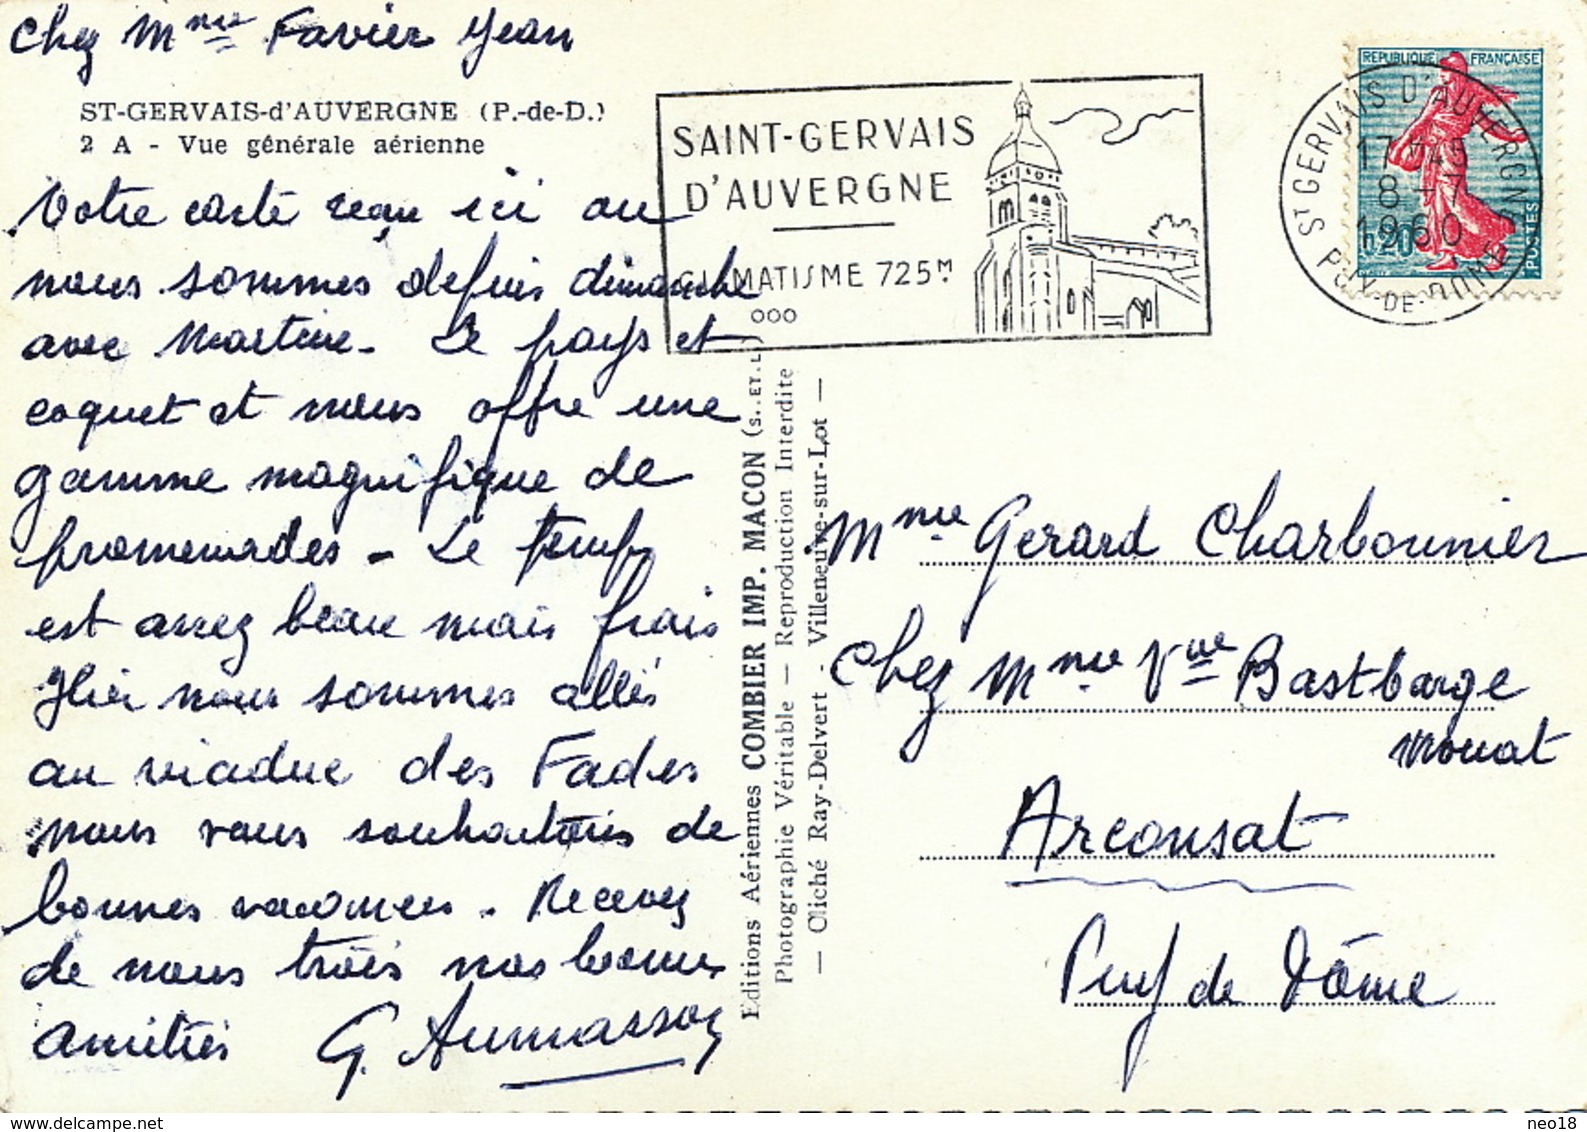 Chez Mme Favier Jean
ST-GERVAIS-d'AUVERGNE (P.-de-D.)
2 A - Vue générale aérienne
Votre carte reçu ici ou
nous sommes depuis dimanche
avec Martine. Le pays et
coquet et nous offre une
gamme magnifique de
promenades - Le temps
est assez beau mais frais
Hier nous sommes allés
au viaduc des Fades
nous vous souhaitons de
bonnes vacances. Recevez
de nous trois nos bonnes
amitiés G. Aumasson
SAINT-GERVAIS
D'AUVERGNE
CLIMATISME 725M.
ooo
REPUBLIQUE FRANÇAISE
0,20
POSTES
ST GERVAIS D'AUVERGNE
17H45
8 - 7
1960
PUY-DE-DOME
Editions Aériennes COMBIER IMP. MACON (S.-ET-L.)
Photographie Véritable — Reproduction Interdite
— Cliché Ray-Delvert - Villeneuve-sur-Lot —
Mme Gerard Charbonnier
Chez Mme Vve Bastbarge
Arconsat
Puy de Dôme
neo18